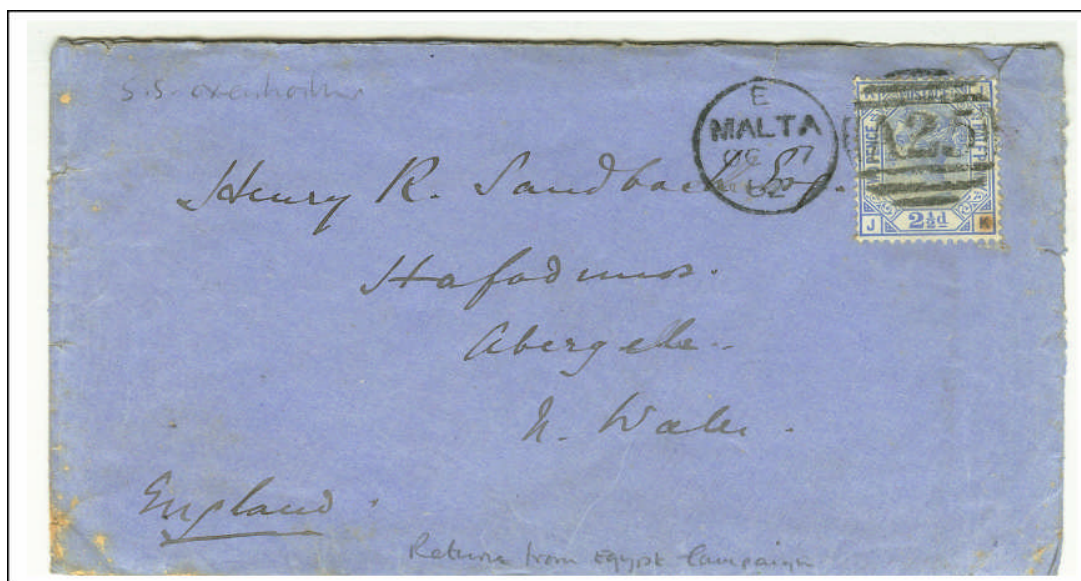 S.S.
E
MALTA
OC 7
82
A25
POSTAGE
2½d
J K
Henry R. Sandbach Esq.
Hafodunos.
Abergele.
N. Wales.
England.
Return from Egypt Campaign